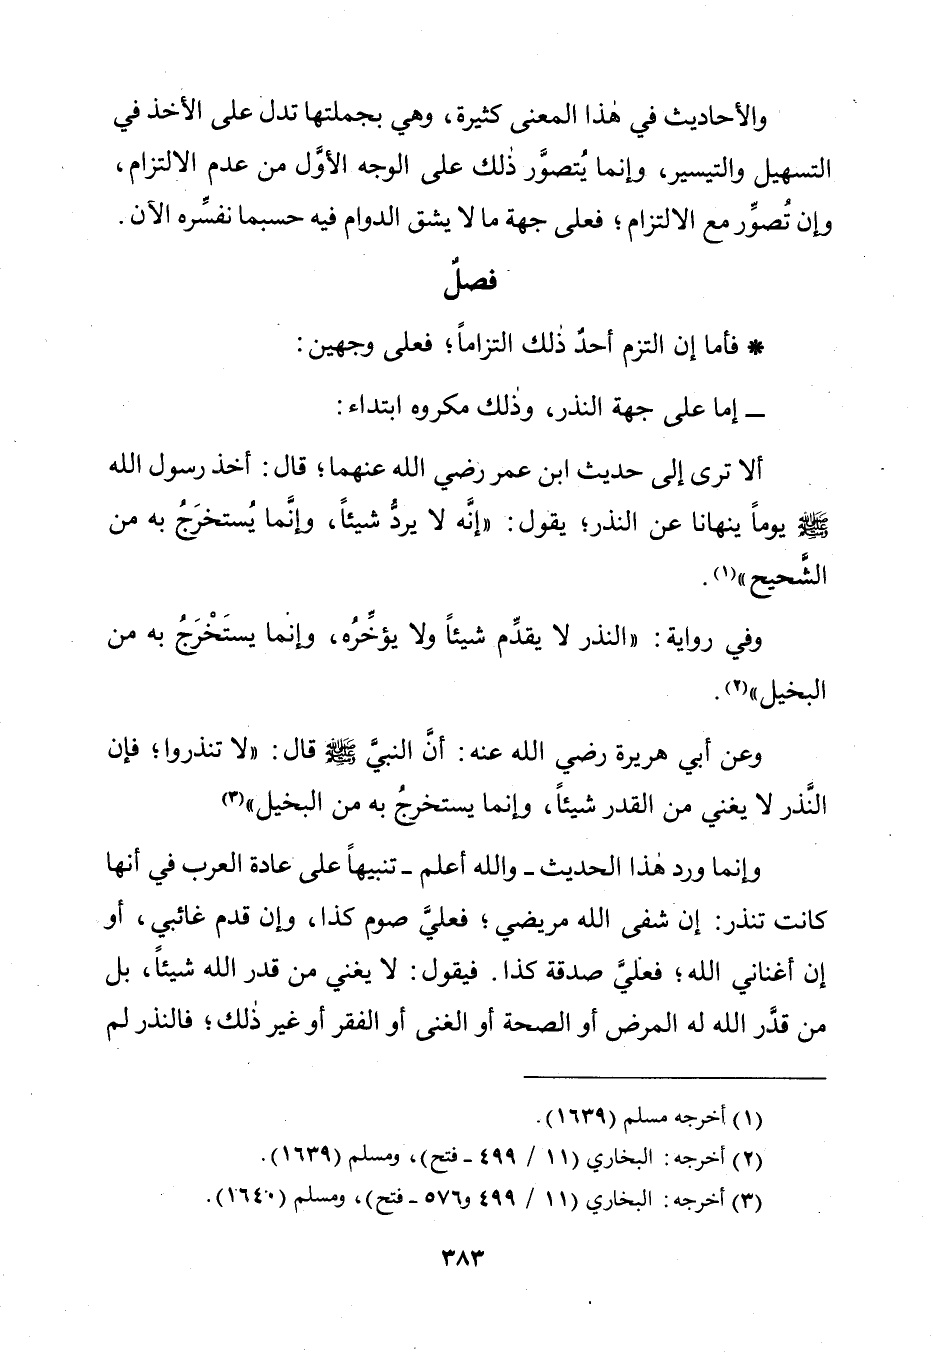 والأحاديث في هٰذا المعنى كثيرة، وهي بجملتها تدل على الأخذ في
التسهيل والتيسير، وإنما يُتصوَّر ذٰلك على الوجه الأوَّل من عدم الالتزام،
وإن تُصوِّر مع الالتزام؛ فعلى جهة ما لا يشق الدوام فيه حسبما نفسِّره الآن.
فصلٌ
* فأما إن التزم أحدٌ ذٰلك التزاماً؛ فعلى وجهين:
ــ إما على جهة النذر، وذٰلك مكروه ابتداء:
ألا ترى إلى حديث ابن عمر رضي الله عنهما؛ قال: أخذ رسول الله
ﷺ يوماً ينهانا عن النذر؛ يقول: «إنَّه لا يردُّ شيئاً، وإنَّما يُستخرَجُ به من
الشَّحيح»(١).
وفي رواية: «النذر لا يقدِّم شيئاً ولا يؤخِّرُه، وإنما يستَخْرَجُ به من
البخيل»(٢).
وعن أبي هريرة رضي الله عنه: أنَّ النبيَّ ﷺ قال: «لا تنذروا؛ فإن
النَّذر لا يغني من القدر شيئاً، وإنما يستخرجُ به من البخيل»(٣)
وإنما ورد هٰذا الحديث ـ والله أعلم ـ تنبيهاً على عادة العرب في أنها
كانت تنذر: إن شفى الله مريضي؛ فعليَّ صوم كذا، وإن قدم غائبي، أو
إن أغناني الله؛ فعليَّ صدقة كذا. فيقول: لا يغني من قدر الله شيئاً، بل
من قدَّر الله له المرض أو الصحة أو الغنى أو الفقر أو غير ذٰلك؛ فالنذر لم
(١) أخرجه مسلم (١٦٣٩).
(٢) أخرجه: البخاري (١١ / ٤٩٩ ـ فتح)، ومسلم (١٦٣٩).
(٣) أخرجه: البخاري (١١ / ٤٩٩ و٥٧٦ ـ فتح)، ومسلم (١٦٤٠).
٣٨٣